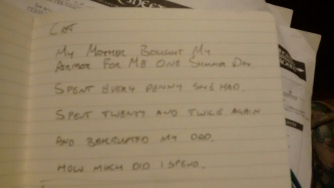 My Mother Bought My
Armor For Me One Summer Day.
Spent Every Penny She Had.
Spent Twenty And Twice Again
And Bankrupted My Dad.
How Much Did I Spend.